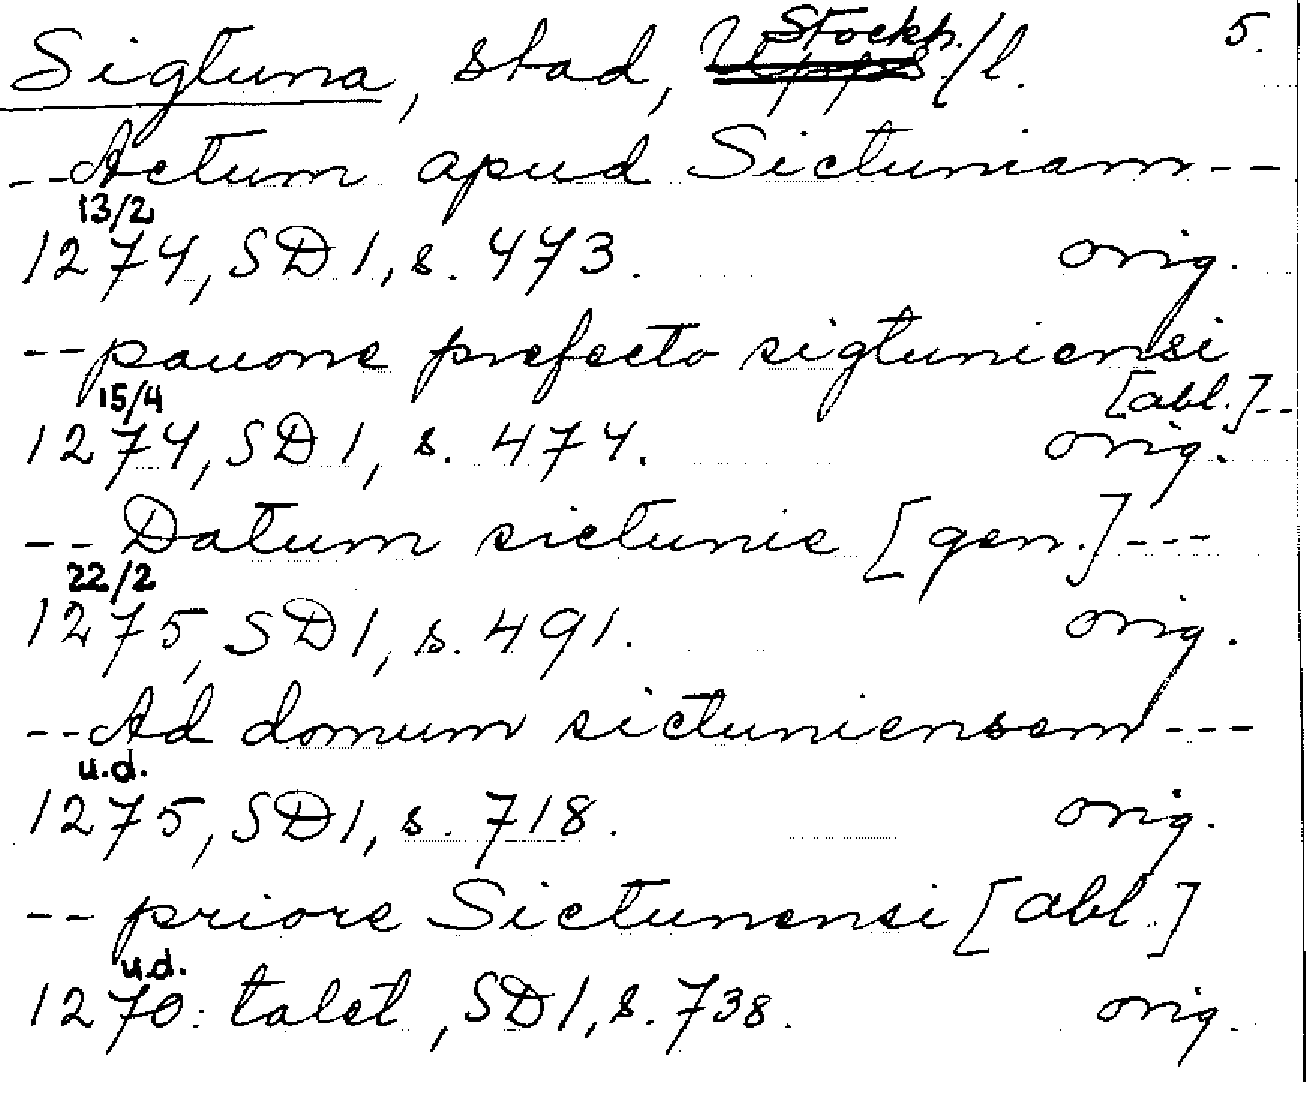 Sigtuna, stad, Upps Stockh./l. 5.
--Actum apud Sictuniam--
13/2
1274, SD 1, s. 473. orig.
--pauone prefecto sigtuniensi
[abl.]--
15/4
1274, SD 1, s. 474. orig.
--Datum sictunie [gen.]---
22/2
1275, SD 1, s. 491. orig.
--Ad domum sictuniensem---
u.d.
1275, SD 1, s. 718. orig.
--priore Sictunensi [abl.]
u.d.
1270: talet, SD 1, s. 738. orig.